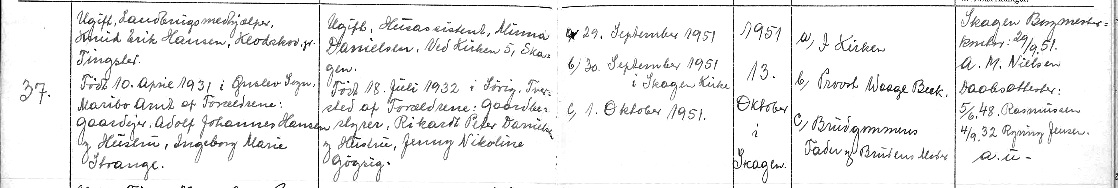 37.
Ugift, Landbrugsmedhjælper,
Knud Erik Hansen, Klodskov, pr.
Tingsted.
Født 10. April 1931 i Sogn,
Maribo Amt af Forældrene:
Gaardejer, Adolf Johannes Hansen
og Hustru, Ingeborg Marie
Strange.
Ugift, Husassistent, Minna
Danielsen, Ved Kirken 5, Ska-
gen.
Født 18. Juli 1932 i Sørig, Tver-
sted af Forældrene: Gaardbe-
styrer, Rikardt Peter Danielsen
og Hustru, Jenny Nikoline
a) 29. September 1951
b) 30. September 1951
i Skagen Kirke
c) 1. Oktober 1951.
1951
13.
Oktober
i
Skagen.
a) I Kirken
b) Provst Waage Beck.
c) Brudgommens
Fader og Brudens Moder
Skagen Borgmester-
kontor. 29/9.51.
A. M. Nielsen
Daabsattester:
5/6.48. Rasmussen
4/9.32 Jensen.
a. u -